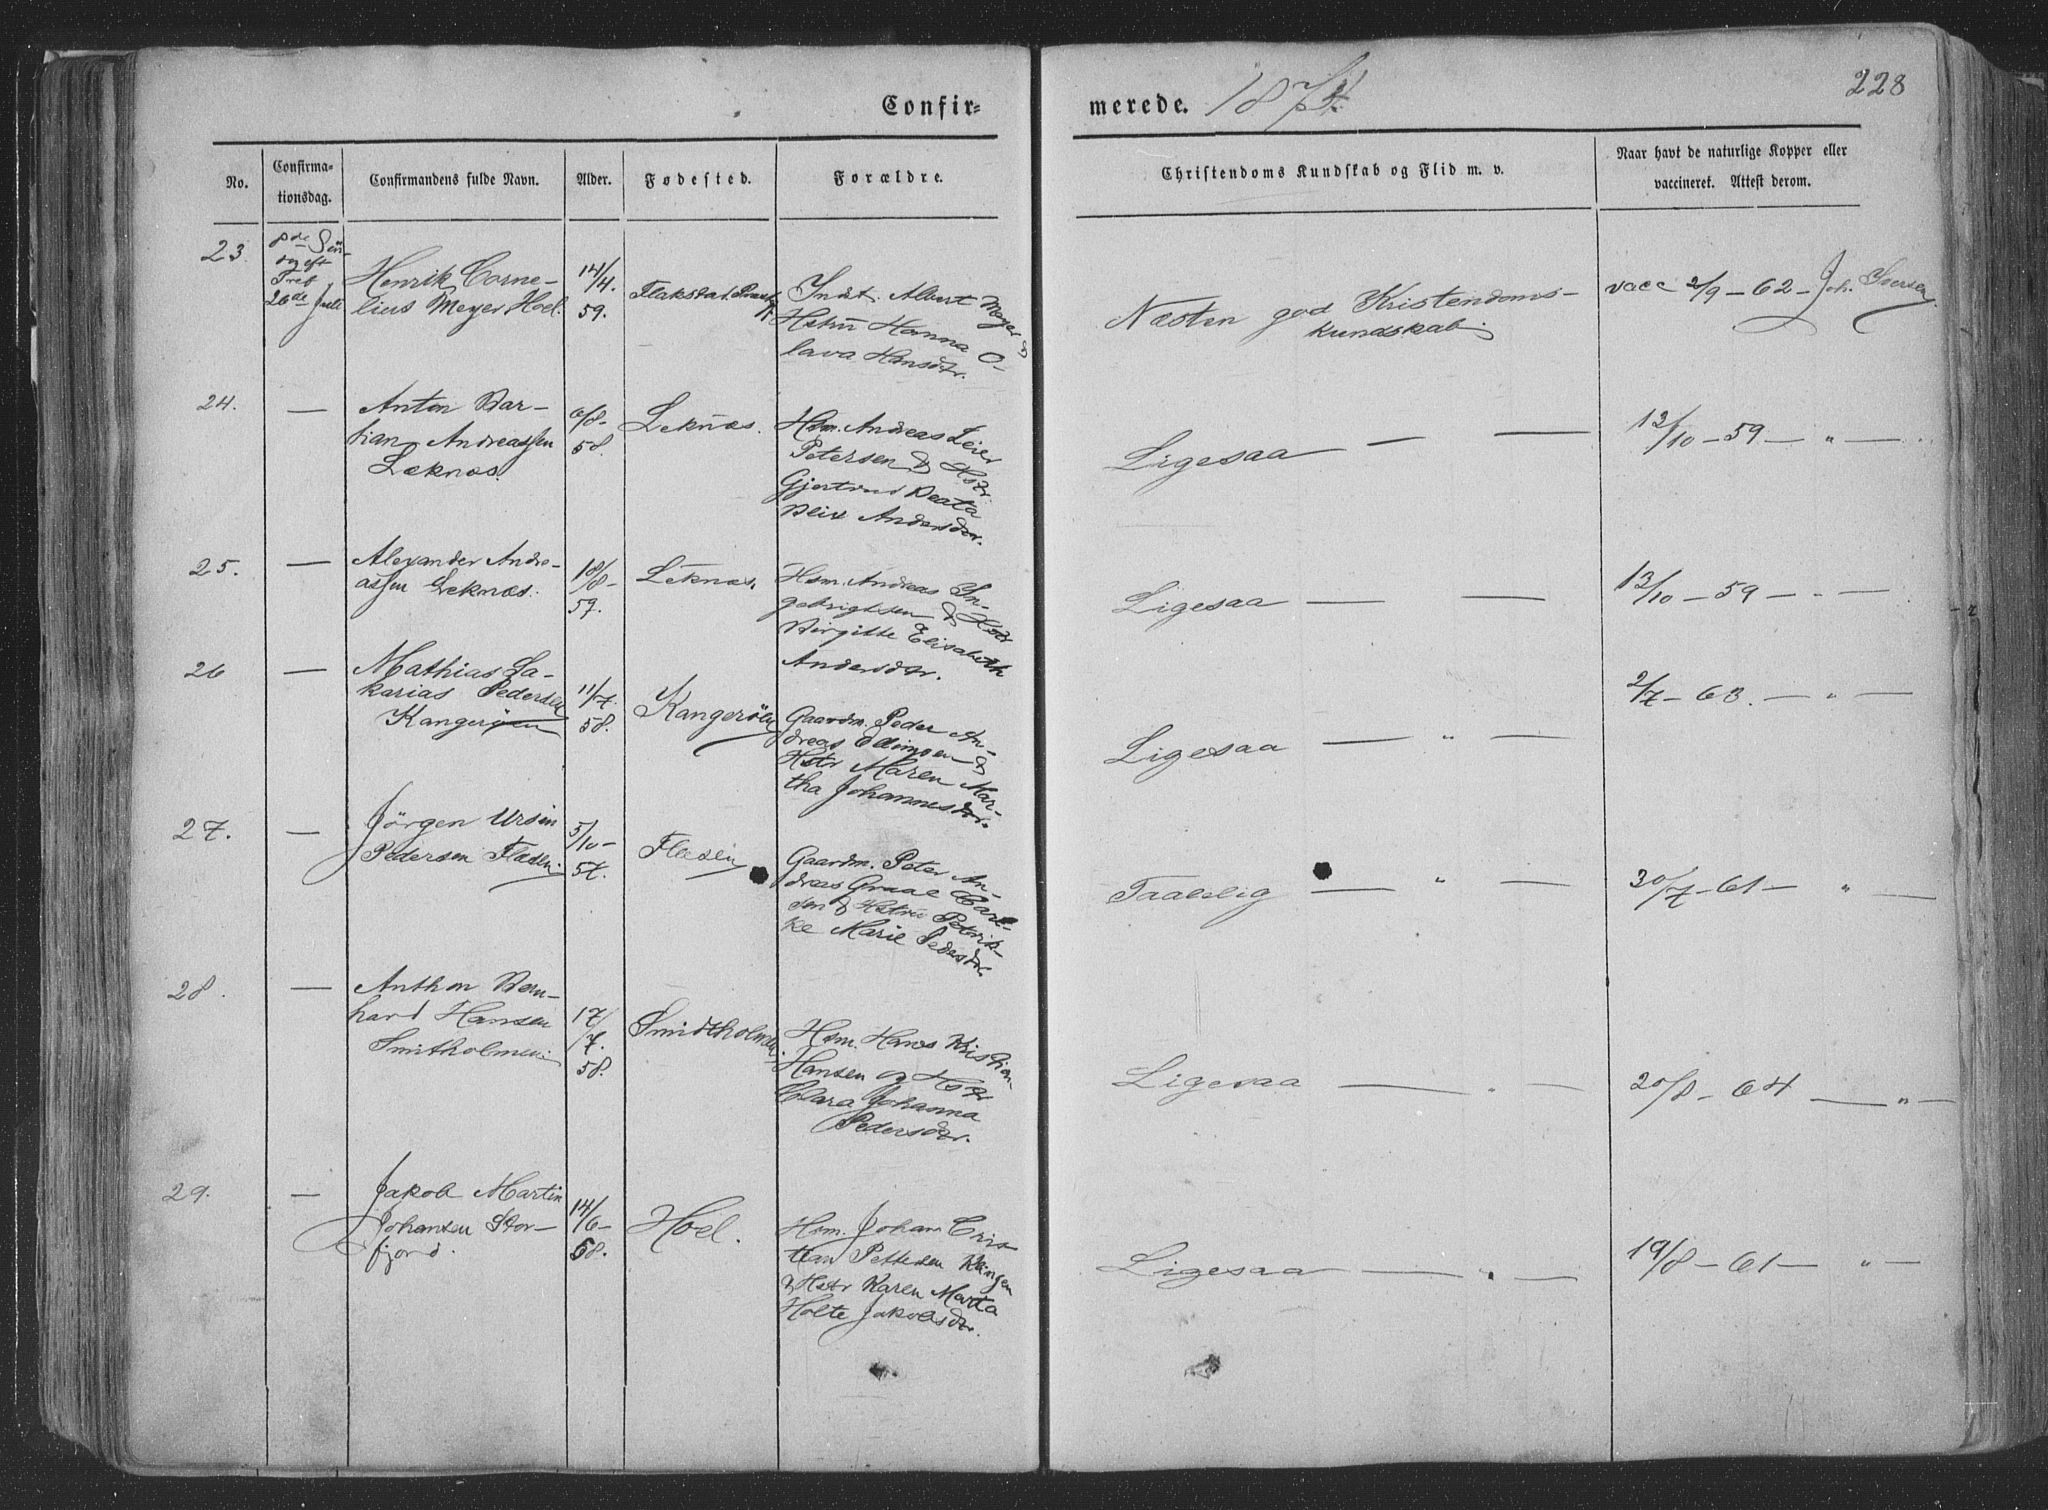 Confir-
merede. 1874.
228
No.
Confirma-
tionsdag.
Confirmandens fulde Navn.
Alder.
Fødested.
Forældre.
Christendoms Kundskab og Flid m. v.
Naar havt de naturlige Kopper eller
vaccineret. Attest derom.
23.
8de Sön-
dag eft
Tref
26de Juli
Henrik Corne-
lius Meyer Hoel.
14/4.
59.
Indst. Albert Meyer &
Hstru Hanna O-
lava Hansdtr.
Næsten god Kristendoms-
kundskab.
vacc 2/9 - 62 - Joh. Iversen
24.
—
Anton Bar-
tian Andreassen
Leknæs.
6/8-
58.
Leknæs.
Hsm. Andreas Leier
Petersen & Hstr.
Gjertrud Beata
Blix Andersdtr.
Ligesaa — —
13/10 - 59 - „ —
25.
—
Alexander Andre-
assen Leknæs.
18/8-
59.
Leknæs.
Hsm. Andreas In-
gebrigtsen & Hstr
Birgitte Elisabeth
Andersdtr.
Ligesaa — —
13/10 - 59 - „ —
26
—
Mathias Sa-
karias Pedersen
Kangerøen
11/7.
58.
Kangeröen
Gaardm. Peder An-
dreas Ellingsen &
Hstr Maren Mar-
tha Johannesdtr.
Ligesaa — „ —
2/7 - 63. — „ —
27.
—
Jörgen Ursin
Pedersen Flæsen.
5/10-
57.
Flæsen
Gaardm. Peter An-
dreas Graae Carl-
sen & Hstru Petrik-
ke Marie Pedersdtr.
Taalelig — „ —
30/7 - 61 - „ —
28.
—
Anthon Bern-
hard Hansen
Smitholmen.
17/7.
58.
Smidtholmen.
Hsm. Hans Kristian
Hansen og Hstr
Clara Johanna
Pedersdtr.
Ligesaa — „ —
20/8 - 64 — „ —
29.
—
Jakob Martin
Johansen Stor-
fjord.
14/6-
58.
Hoel.
Hsm. Johan Cris-
tian Pettersen Klingen
& Hstr Karen Marta
Holte Jakobsdtr.
Ligesaa — „ —
19/8 - 61 — „ —